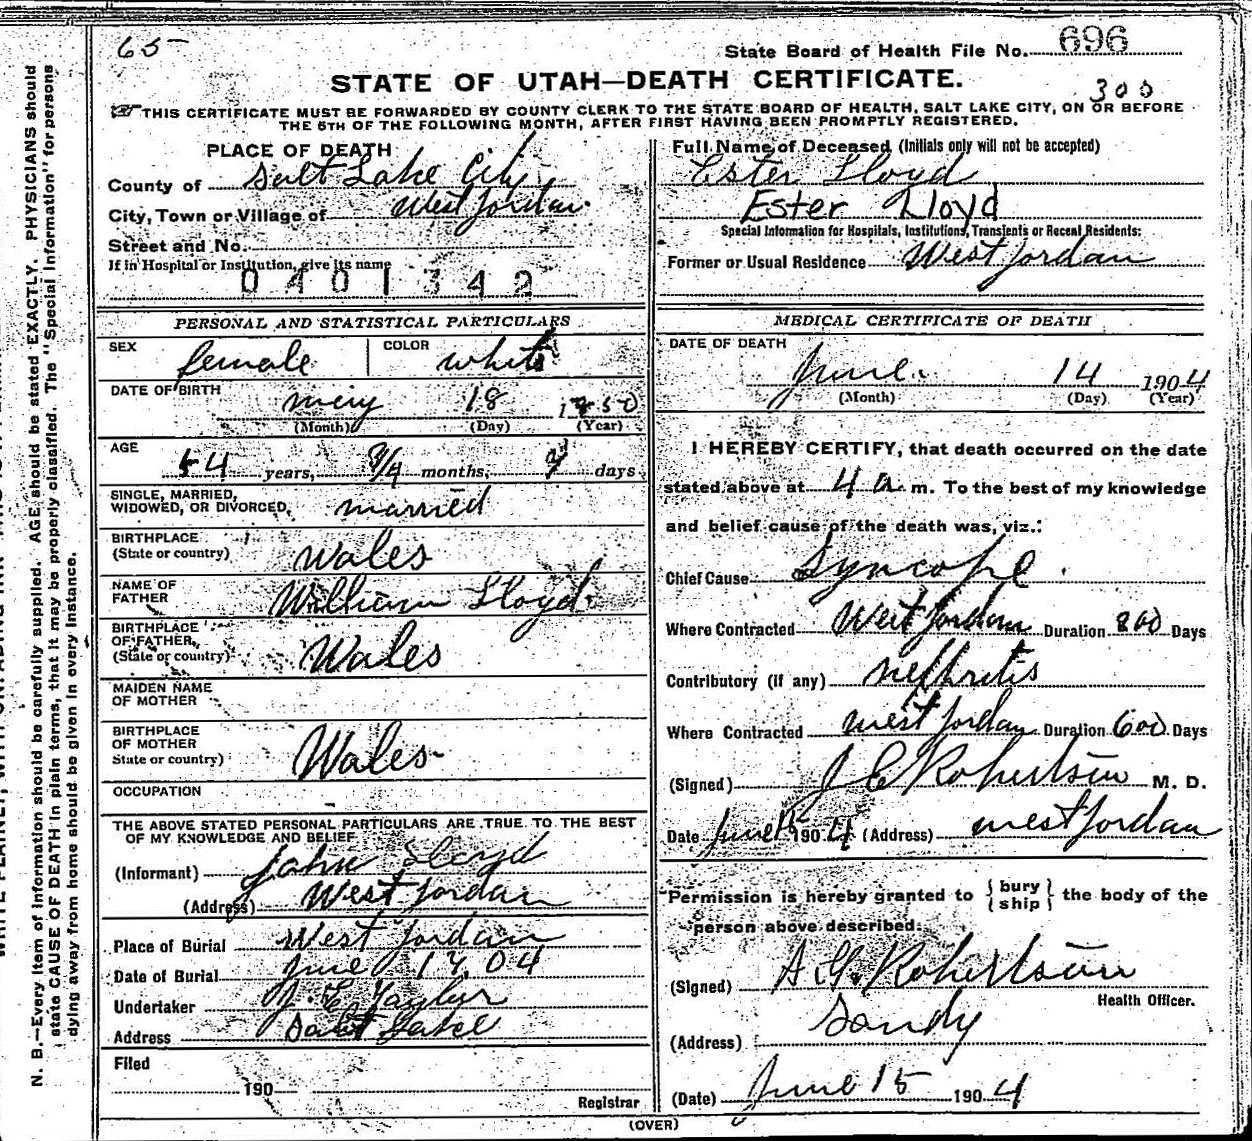 65
State Board of Health File No. 696
STATE OF UTAH—DEATH CERTIFICATE.
300
THIS CERTIFICATE MUST BE FORWARDED BY COUNTY CLERK TO THE STATE BOARD OF HEALTH, SALT LAKE CITY, ON OR BEFORE
THE 5TH OF THE FOLLOWING MONTH, AFTER FIRST HAVING BEEN PROMPTLY REGISTERED.
PLACE OF DEATH
County of Salt Lake City
City, Town or Village of West Jordan
Street and No.
If in Hospital or Institution, give its name
0401342
Full Name of Deceased (Initials only will not be accepted)
Ester Lloyd
Ester Lloyd
Special Information for Hospitals, Institutions, Transients or Recent Residents:
Former or Usual Residence West Jordan
PERSONAL AND STATISTICAL PARTICULARS
SEX female COLOR white
DATE OF BIRTH
May 18 1850
(Month) (Day) (Year)
AGE
54 years, months, days
SINGLE, MARRIED,
WIDOWED, OR DIVORCED, married
BIRTHPLACE
(State or country) Wales
NAME OF
FATHER William Lloyd
BIRTHPLACE
OF FATHER,
(State or country) Wales
MAIDEN NAME
OF MOTHER
BIRTHPLACE
OF MOTHER
State or country) Wales
OCCUPATION
THE ABOVE STATED PERSONAL PARTICULARS ARE TRUE TO THE BEST
OF MY KNOWLEDGE AND BELIEF
(Informant) John Lloyd
(Address) West Jordan
Place of Burial West Jordan
Date of Burial June 17, 04
Undertaker J. E. Taylor
Address Salt Lake
Filed
190
Registrar
MEDICAL CERTIFICATE OF DEATH
DATE OF DEATH
June 14 1904
(Month) (Day) (Year)
I HEREBY CERTIFY, that death occurred on the date
stated above at 4 a m. To the best of my knowledge
and belief cause of the death was, viz.:
Chief Cause Syncope
Where Contracted West Jordan Duration 800 Days
Contributory (if any) nephritis
Where Contracted West Jordan Duration 600 Days
(Signed) J E Robertson M. D.
Date June 15 1904 (Address) West Jordan
Permission is hereby granted to { bury ship } the body of the
person above described.
(Signed) A. G. Robertson
Health Officer.
Sandy
(Address)
(Date) June 15 1904
(OVER)
N. B.—Every item of information should be carefully supplied. AGE should be stated EXACTLY. PHYSICIANS should
state CAUSE OF DEATH in plain terms, that it may be properly classified. The "Special Information" for persons
dying away from home should be given in every instance.